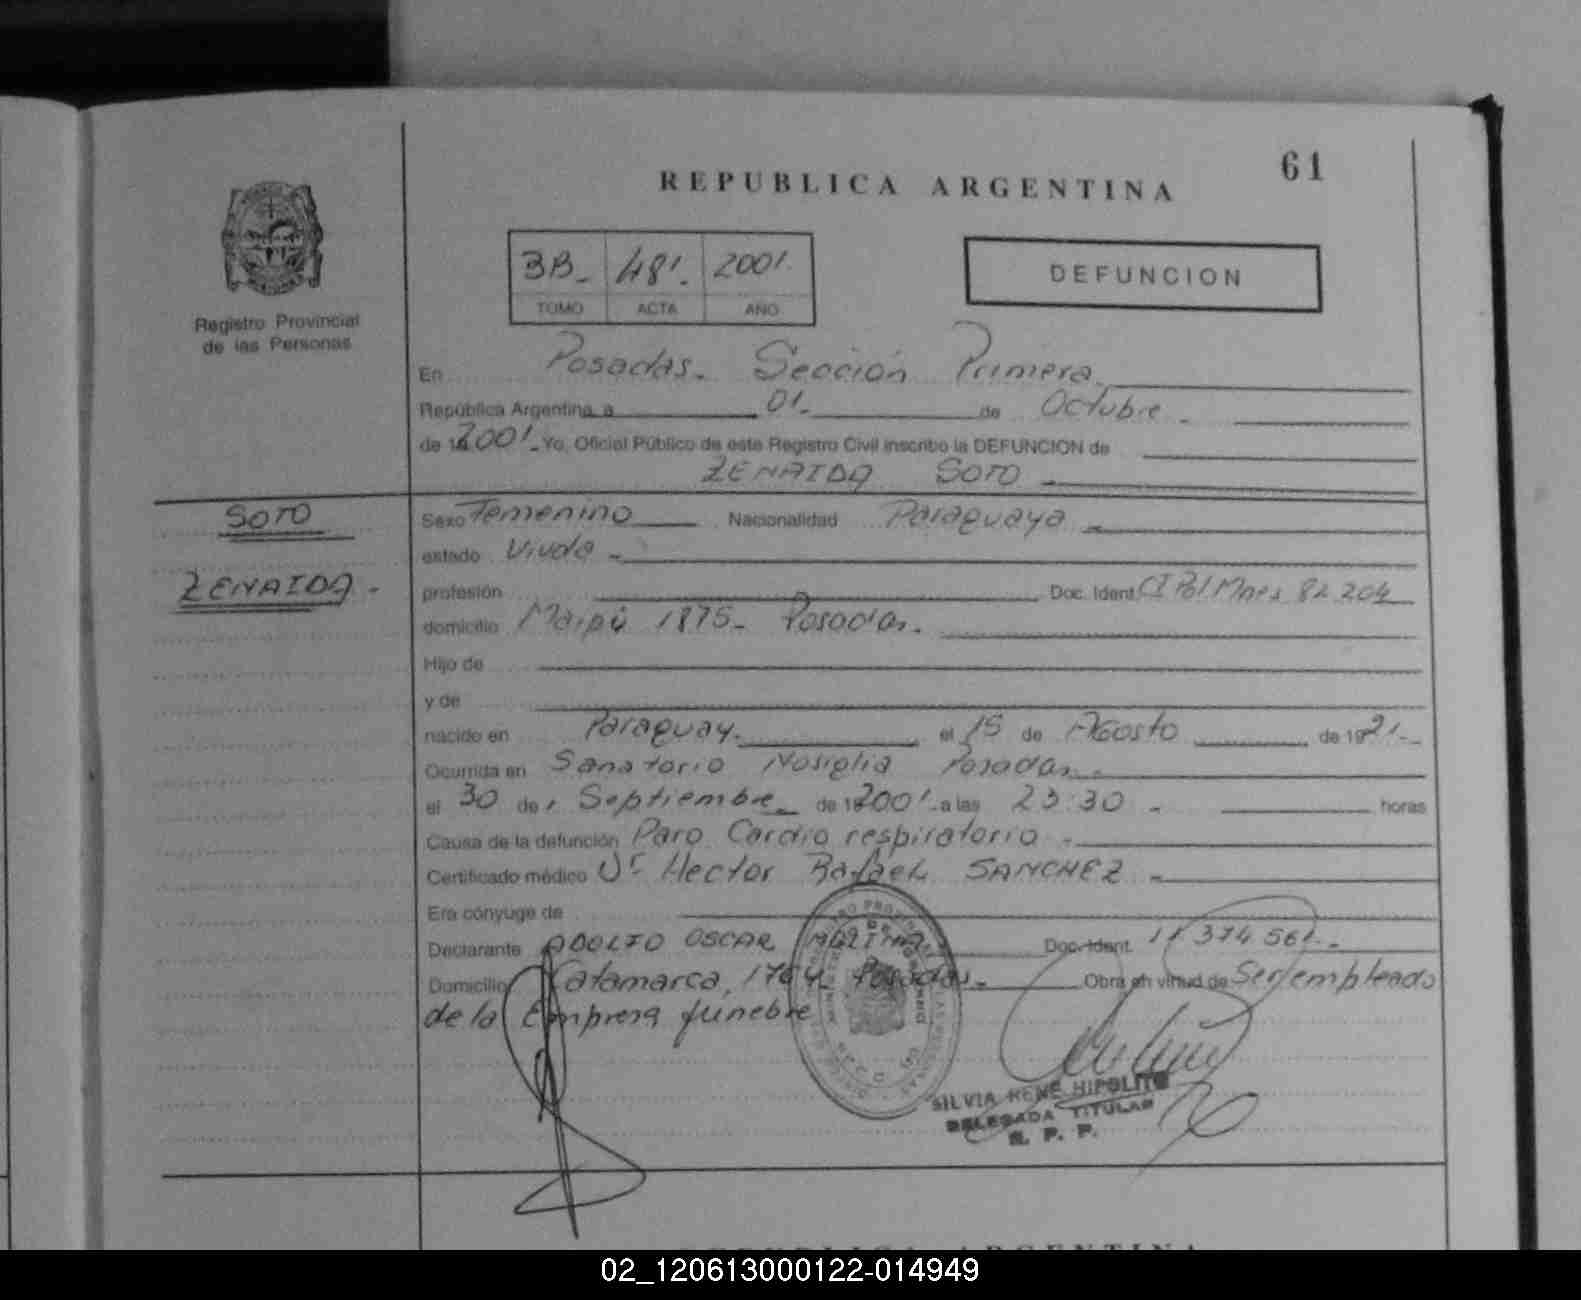 61
REPUBLICA ARGENTINA
3B- 481. 2001.
TOMO ACTA AÑO
DEFUNCION
Registro Provincial
de las Personas
En Posadas. Sección Primera
República Argentina a 01. de Octubre
de 192001. Yo, Oficial Público de este Registro Civil inscribo la DEFUNCION de
ZENAIDA SOTO
SOTO
ZENAIDA -
Sexo Femenino Nacionalidad Paraguaya
estado Viuda
profesión Doc. Ident. CI Pol Mnes 82 204
domicilio Maipú 1875- Posadas.
Hijo de
y de
nacido en Paraguay. el 15 de Agosto de 1921.
Ocurrida en Sanatorio Nosiglia Posadas
el 30 de Septiembre de 192001. a las 23:30 horas
Causa de la defunción Paro Cardio respiratorio
Certificado médico Dr Hector Rafael SANCHEZ
Era cónyuge de
Declarante ADOLFO OSCAR Doc. Ident. 11 374 561.
Domicilio Catamarca, 1764 Posadas Obra en virtud de Ser empleado
de la Empresa funebre
SILVIA RENE HIPOLITO
DELEGADA TITULAR
R. P. P.
REPUBLICA ARGENTINA
02_120613000122-014949